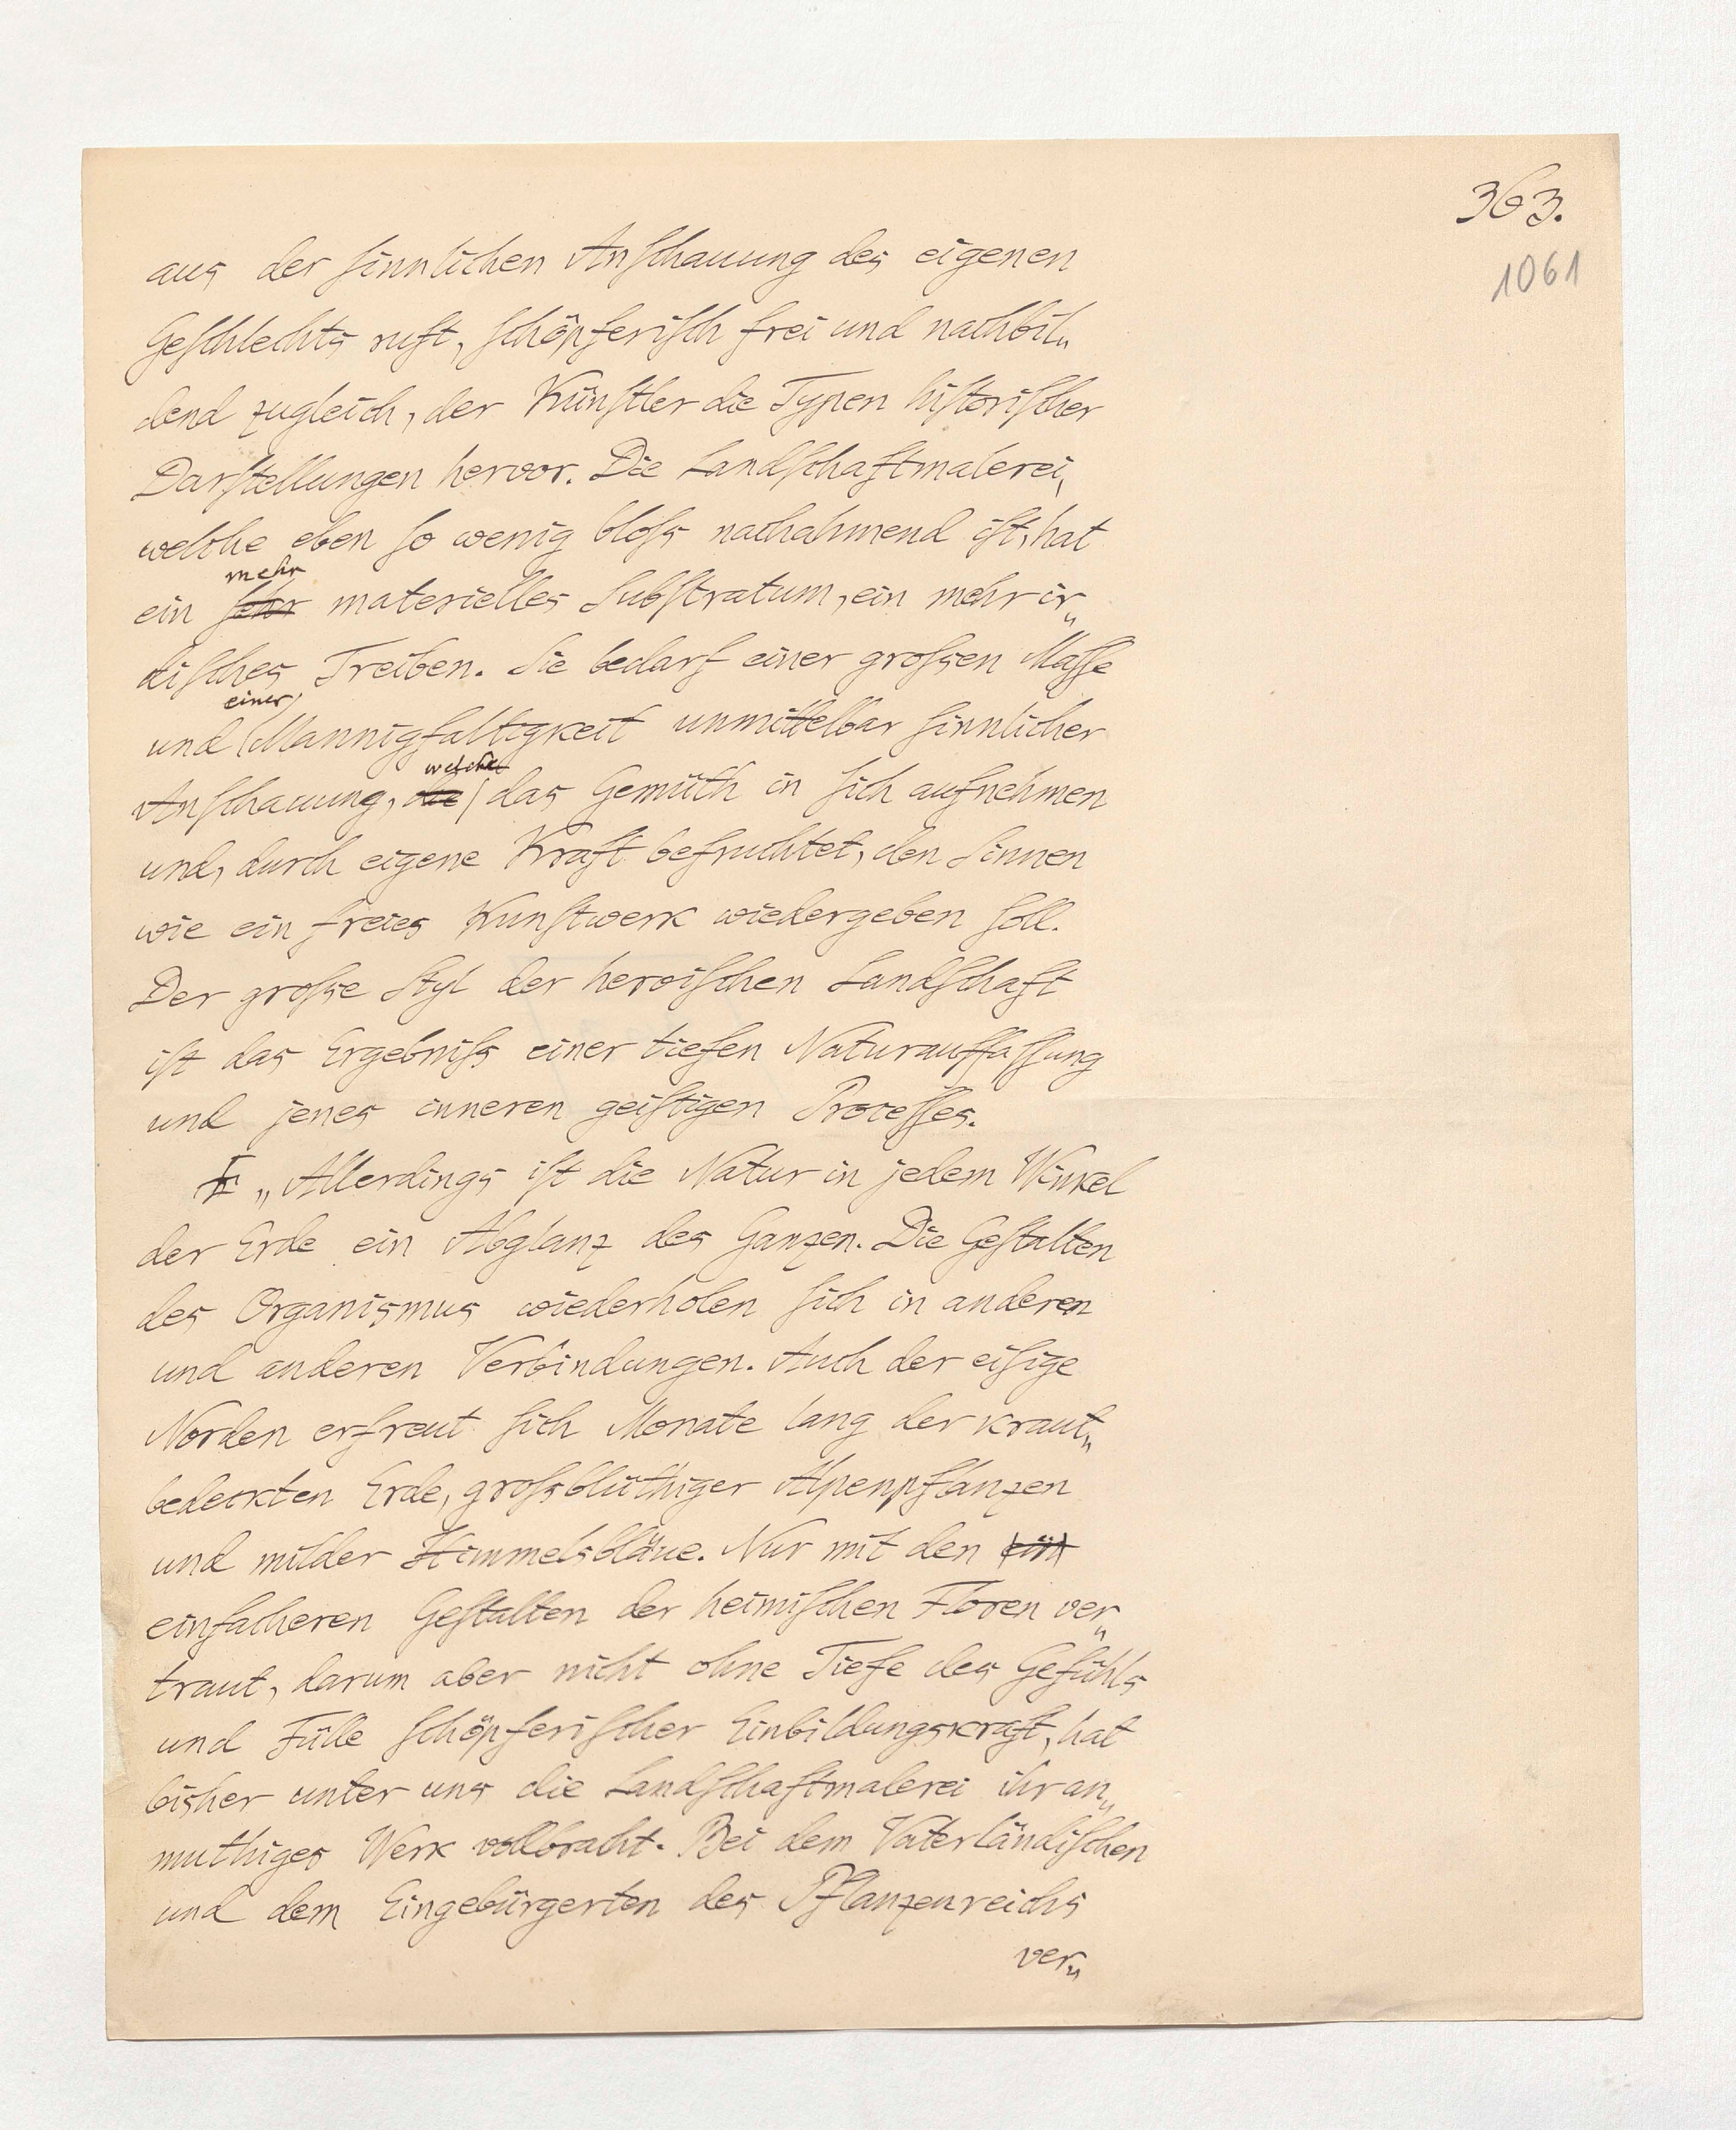 363.
1061
aus der ſinnlichen Anſchauung des eigenen
Geſchlechts ruft, ſchöpferiſch frei und nachbil„
dend zugleich, der Künſtler die Typen hiſtoriſcher
Darſtellungen hervor. Die Landſchaftmalerei,
welche eben ſo wenig bloſs nachahmend iſt, hat
mehr
ein ſehr materielles Subſtratum, ein mehr ir„
diſches Treiben. Sie bedarf einer groſsen Maſſe
einer
und Mannigfaltigkeit unmittelbar ſinnlicher
welche
Anſchauung, die das Gemüth in ſich aufnehmen
und, durch eigene Kraft befruchtet, den Sinnen
wie ein freies Kunſtwerk wiedergeben ſoll.
Der groſse Styl der heroiſchen Landſchaft
iſt das Ergebniſs einer tiefen Naturauffaſſung
und jenes inneren geiſtigen Proceſſes.
„Allerdings iſt die Natur in jedem Winkel
der Erde ein Abglanz des Ganzen. Die Geſtalten
des Organismus wiederholen ſich in anderen
und anderen Verbindungen. Auch der eiſige
Norden erfreut ſich Monate lang der kraut„
bedeckten Erde, groſsblüthiger Alpenpflanzen
und milder Himmelsbläue. Nur mit den ein
einfacheren Geſtalten der heimiſchen Floren ver„
traut, darum aber nicht ohne Tiefe des Gefühls
und Fülle ſchöpferiſcher Einbildungskraft, hat
bisher unter uns die Landſchaftmalerei ihr an„
muthiges Werk vollbracht. Bei dem Vaterländiſchen
und dem Eingebürgerten des Pflanzenreichs
ver„